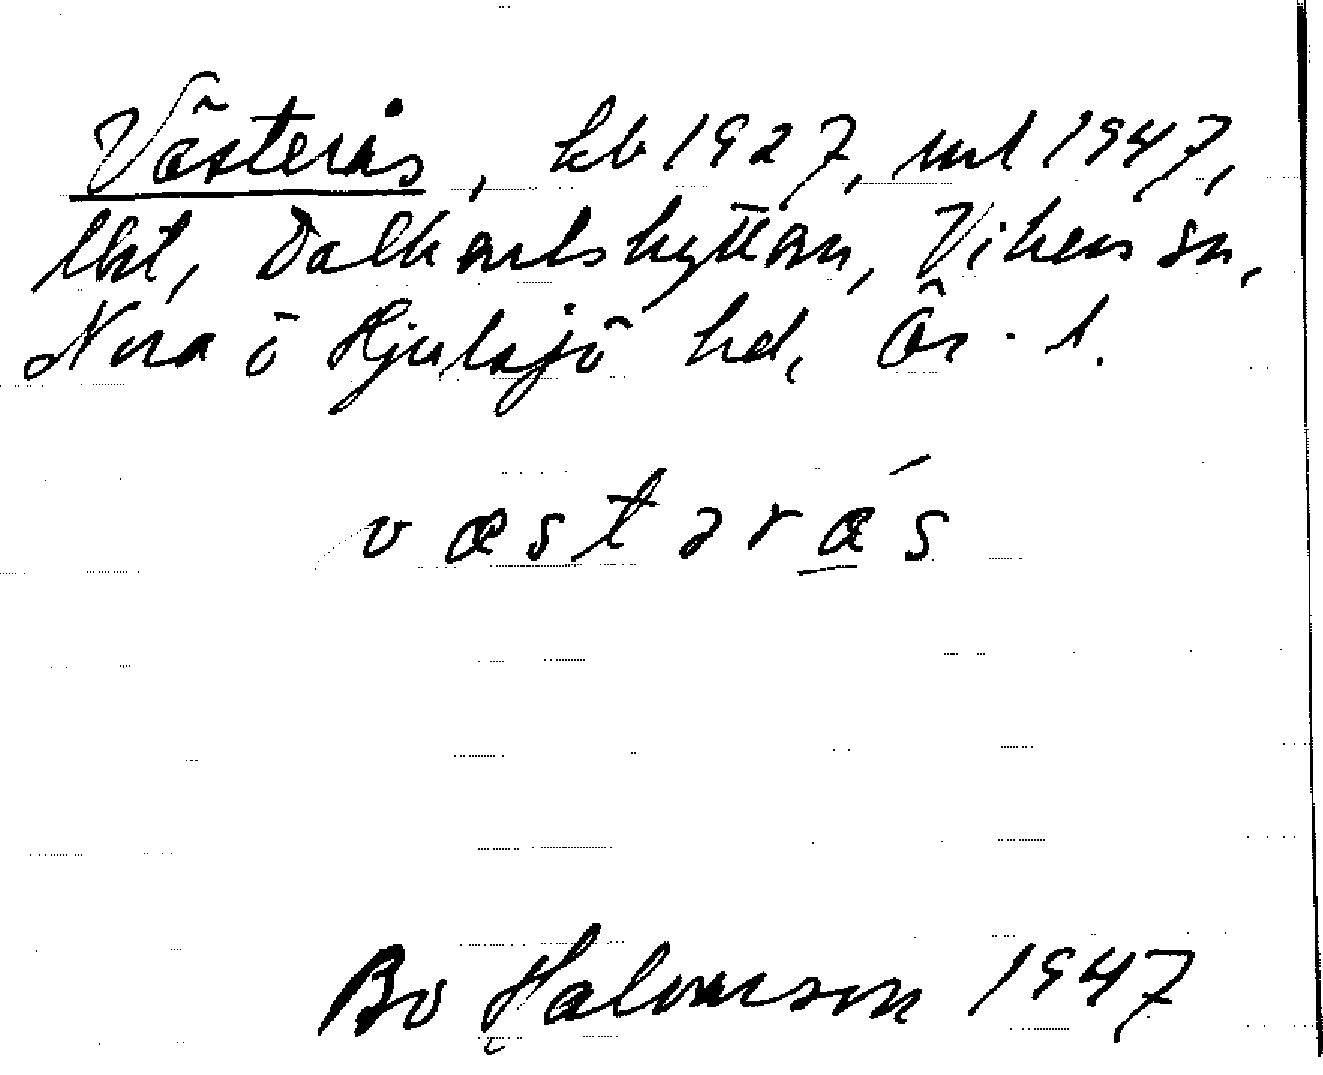 Västerås, kb 1927, ml 1947,
lht, Dalkarlshyttan, Vikers sn,
Nora o Hjulsjö hd, Ör. l.
væstəræ´s
Bo Halvarson 1947